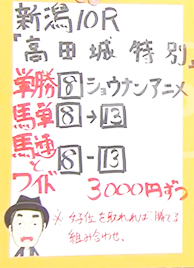 新潟10R
『高田城特別』
単勝 8 ショウナンアニメ
馬単 8→13
馬連 8-13
と
ワイド
3000円ずつ
※好位を取れれば勝てる
組み合わせ。